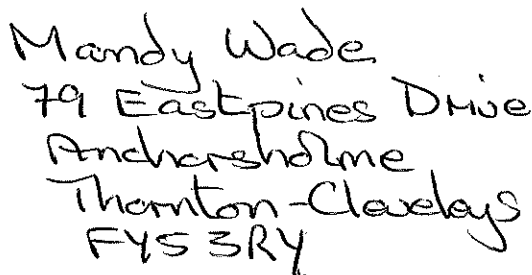 Mandy Wade
79 Eastpines Drive
Anchorsholme
Thornton-Cleveleys
FY5 3RY